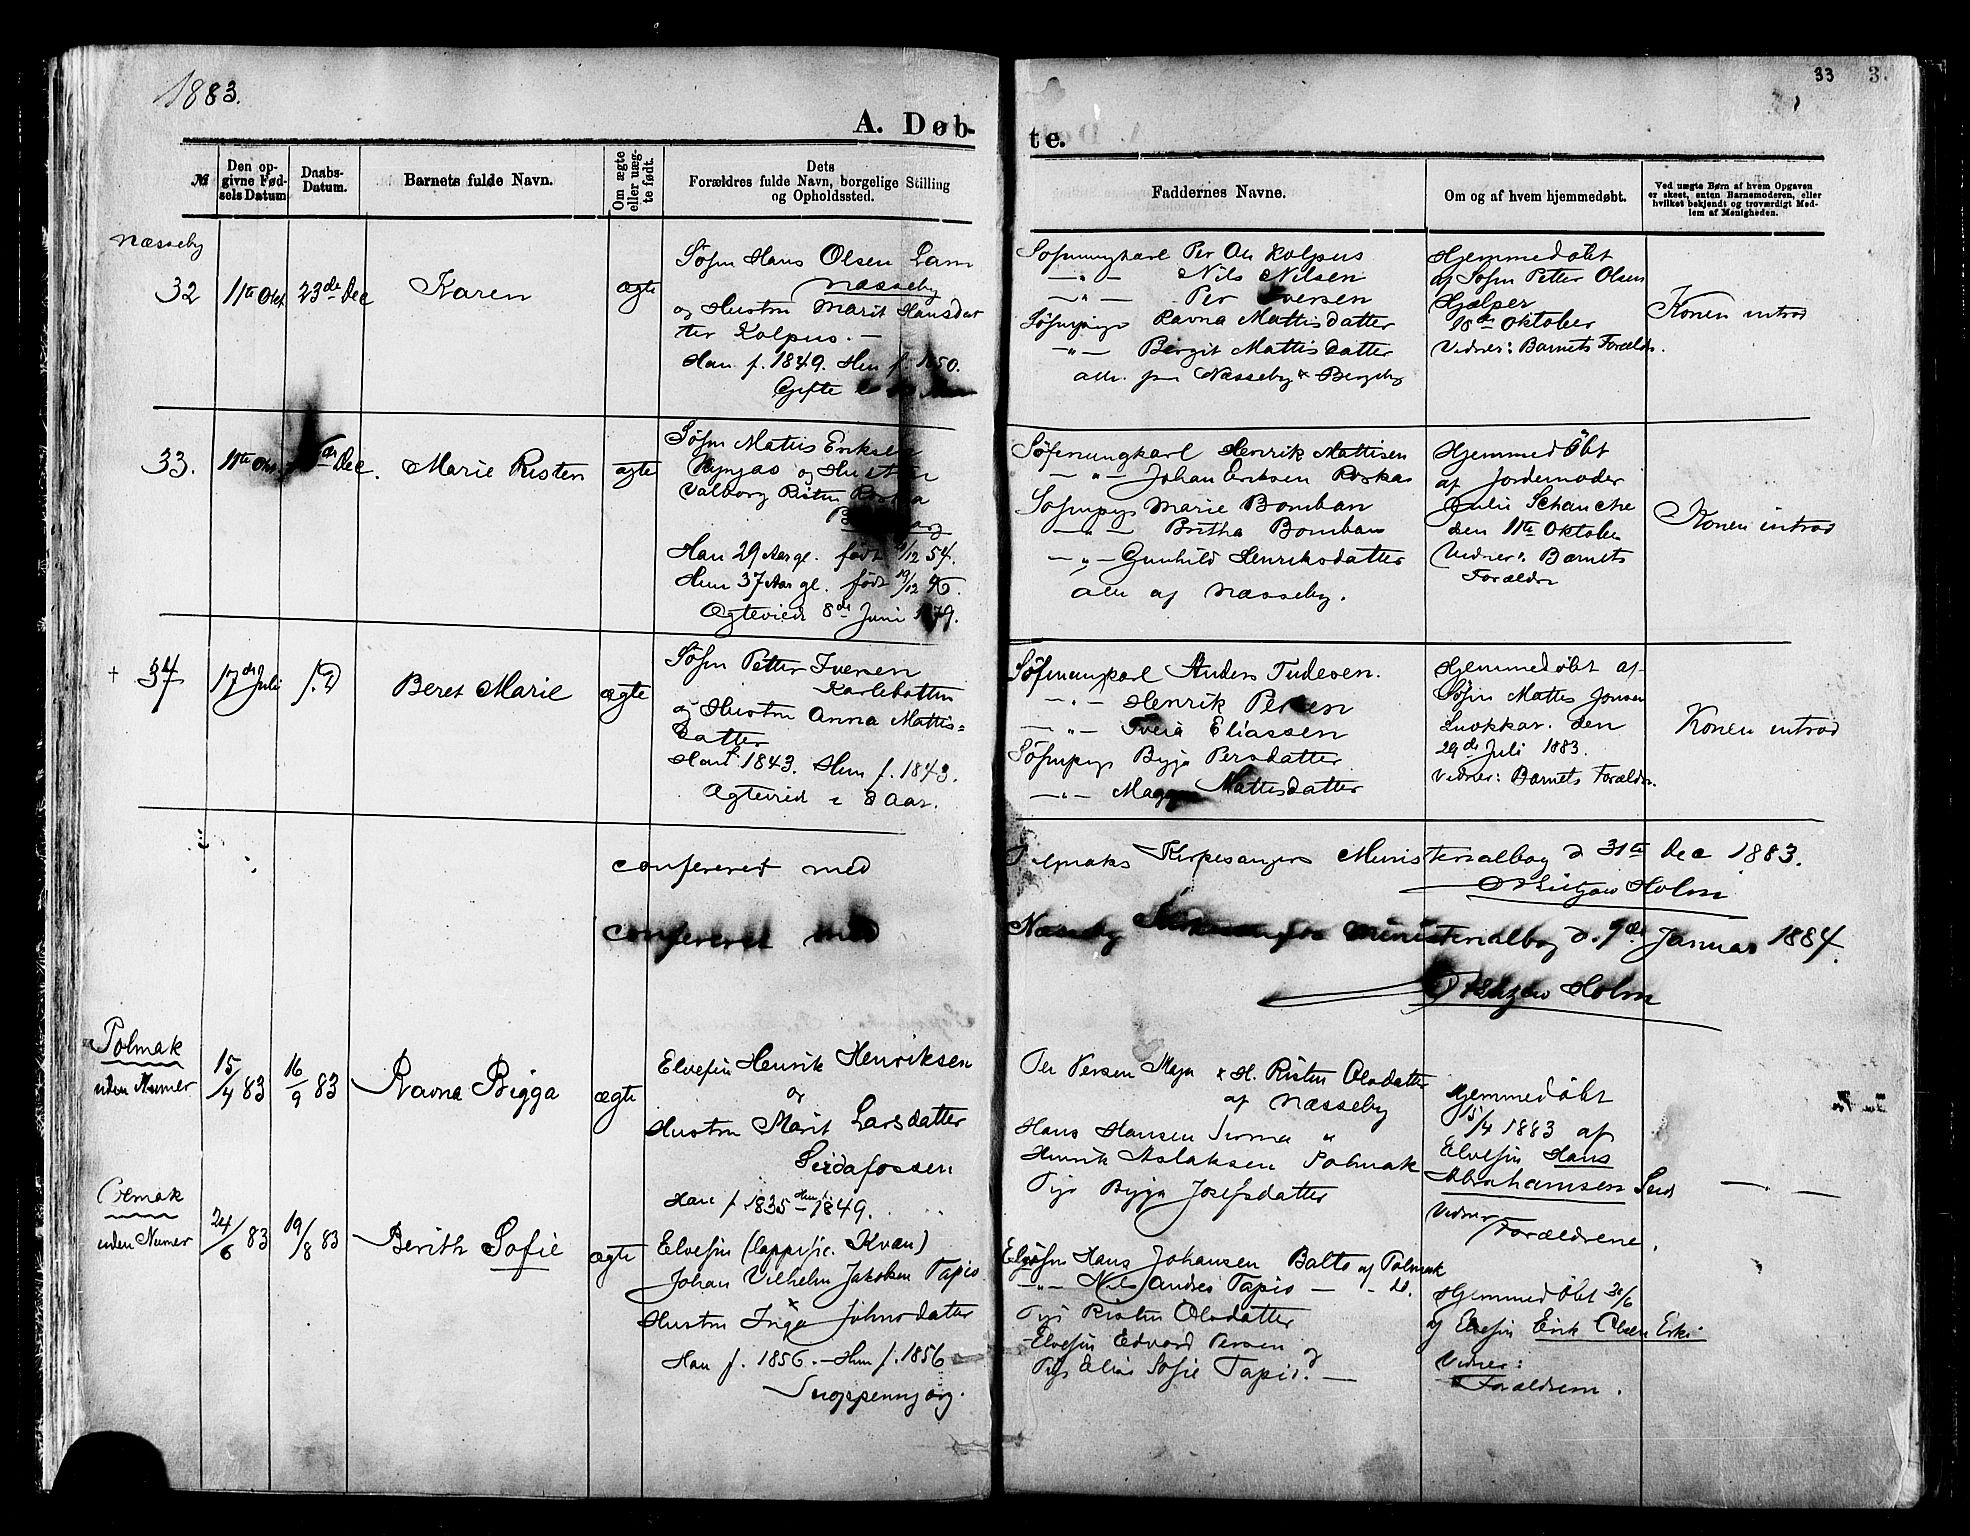 1883.
33 3
A. Døb-
te.
№
Den op-
givne Fød-
sels Datum
Daabs-
Datum.
Barnets fulde Navn.
Om ægte
eller uæg-
te født.
Dets
Forældres fulde Navn, borgelige Stilling
og Opholdssted.
Faddernes Navne.
Om og af hvem hjemmedøbt.
Ved uægte Børn af hvem Opgaven
er skeet, enten Barnemoderen, eller
hvilket bekjendt og troværdigt Med-
lem af Menigheden.
Næsseby
32
11te Okt
23de Dec
Karen
ægte
Søfin Hans Olsen Lam
Næsseby
og Hustru Marit Hansdat
ter Kolpus. —
Han f. 1849. Hun f. 1850.
Gifte
Søfinungkarl Per Ole Kolpus
—"— Nils Nilsen
—"— Per Iversen
Søfinpige Ravna Mattisdatter
—"— Birgit Mattisdatter
alle fra Næsseby & Bergeby
Hjemmedøbt
af Søfin Petter Olsen
Hjælper
18de Oktober
Vidner: Barnets Forældr.
Konen introd
33.
11te Okt
Dec.
Marie Risten
ægte
Søfin Mattis Eriksen
og Hustru
Valborg Risten
Han 29 Aar gl. født /12 54.
Hun 37 Aar gl. født 19/12 46.
Ægteviede 8de Juni 1879.
Søfinungkarl Henrik Mattisen
—"— Johan Eriksen Roska
Søfinpige Marie Bomban
—"— Britha Bomban
—"— Gunhild Henriksdatter
alle af Næsseby.
Hjemmedøbt
af Jordemoder
Julie Schanche
den 11te Oktober
Vidner: Barnets
Forældre
Konen introd
+ 34
17de Juli
s. D
Beret Marie
ægte
Søfin Petter Iversen
Karlebotten
og Hustru Anna Mattis=
datter
Han f. 1843. Hun f. 1843.
Ægteviet i 8 Aar.
Søfinungkarl Anders Tudesen.
—"— Henrik Persen
—"— Eliassen
Søfinpige Bigja Persdatter
—"— Magga Mattisdatter
Hjemmedøbt af
Søfin Mattis Jonsen
Luokkar. den
29de Juli 1883.
Vidner: Barnets Forældr.
Konen introd
confereret med
Polmaks Kirkesangers Ministerialbog d 31te Dec 1883.
Lützow Holm
confereret med
Næsseby Kirkesangers Ministerialbog d. 9de Januar 1884.
Lützow Holm
Polmak
uden Numer
15/4 83
16/9 83
Ravna Bigga
ægte
Elvefin Henrik Henriksen
og
Hustru Marit Larsdatter
Seidafossen
Han f 1835 Hun f. 1849.
Per Persen Maja & H. Risten Olsdatter
af Næsseby
Hans Hansen Sirma "
Henrik Aslaksen Polmak
Pige Bigja Josefsdatter
Hjemmedøbt
15/4 1883 af
Elvefin Hans
Abrahamsen
Vidner
Forældrene.
— —
Polmak
uden Numer
24/6 83
19/8 83
Berith Sofie
ægte
Elvefin (lappisk. Kvæn)
Johan Vilhelm Jakobsen Tapio
Hustru Inga Johnsdatter
Han f. 1856. — Hun f. 1856
Elvefin Hans Johansen Balto af Polmak
—"— Nils Andres Tapio — - do.
Pige Risten Olsdatter
Elvefin Edvard Persen
Pige Elen Sofie Tapio. —
Hjemmedøbt 30/6
af Elvefin Erik Olsen Erki
Vidner:
Forældrene.